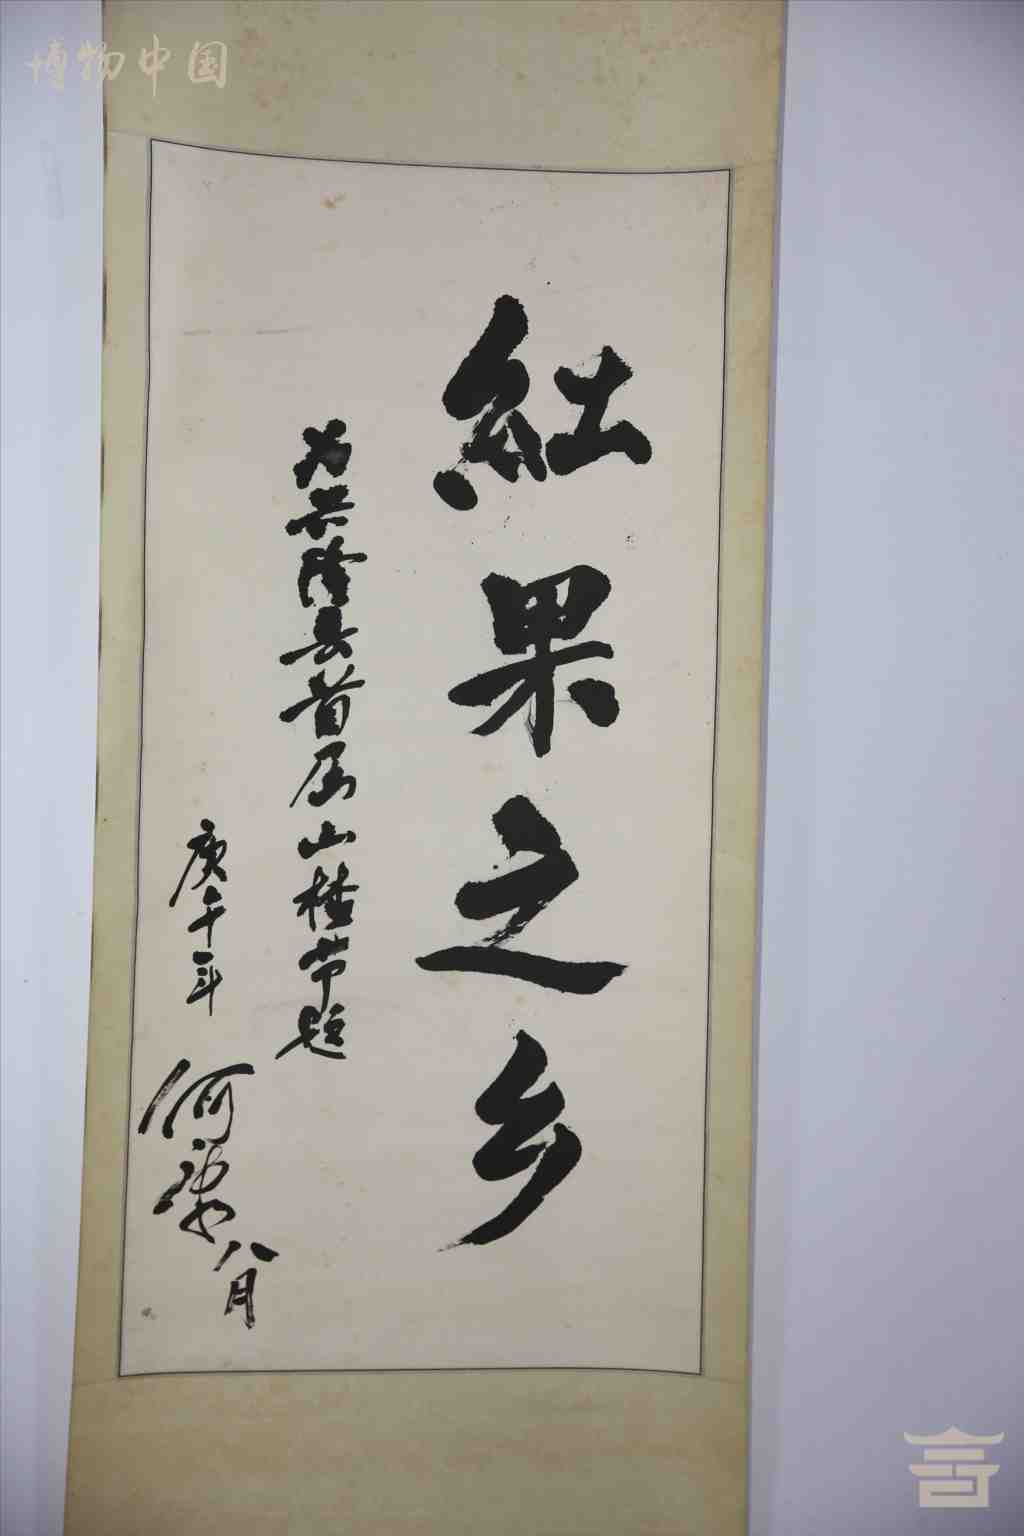 博物中国
紅果之乡
为兴隆县首届山楂节题
庚午年
何
八月